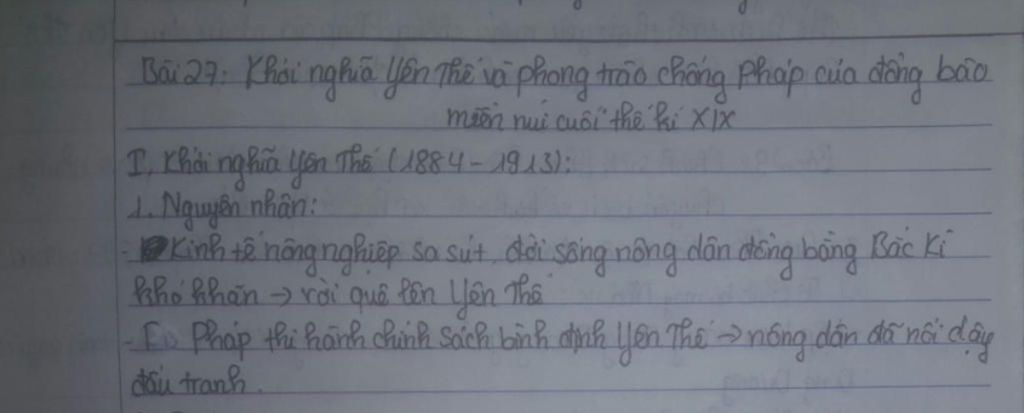 Bài 27: Khởi nghĩa Yên Thế và phong trào chống Pháp của đồng bào
miền núi cuối thế kỉ XIX
I, Khởi nghĩa Yên Thế (1884 - 1913):
1. Nguyên nhân:
- Kinh tế nông nghiệp sa sút, đời sống nông dân đồng bằng Bắc Kì
khó khăn → rời quê lên Yên Thế
- Pháp thi hành chính sách bình định Yên Thế → nông dân đã nổi dậy
đấu tranh.